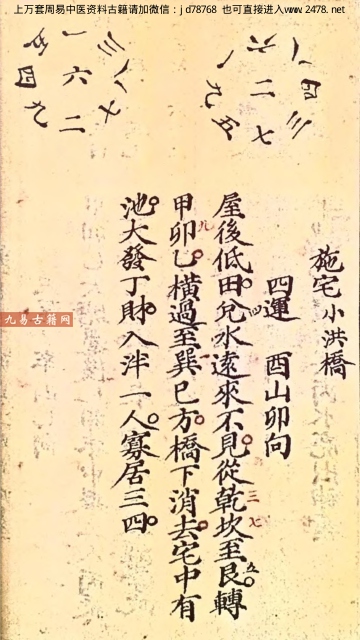 上万套周易中医资料古籍请加微信：jd78768 也可直接进入www.2478.net
施宅小洪橋
四運 酉山卯向
屋後低田兌水遠來不見從乾坎至艮轉
四 三 七 五
甲卯乙橫過至巽巳方橋下消去宅中有
九 一
池大發丁財入泮一人寡居三四
九易古籍网